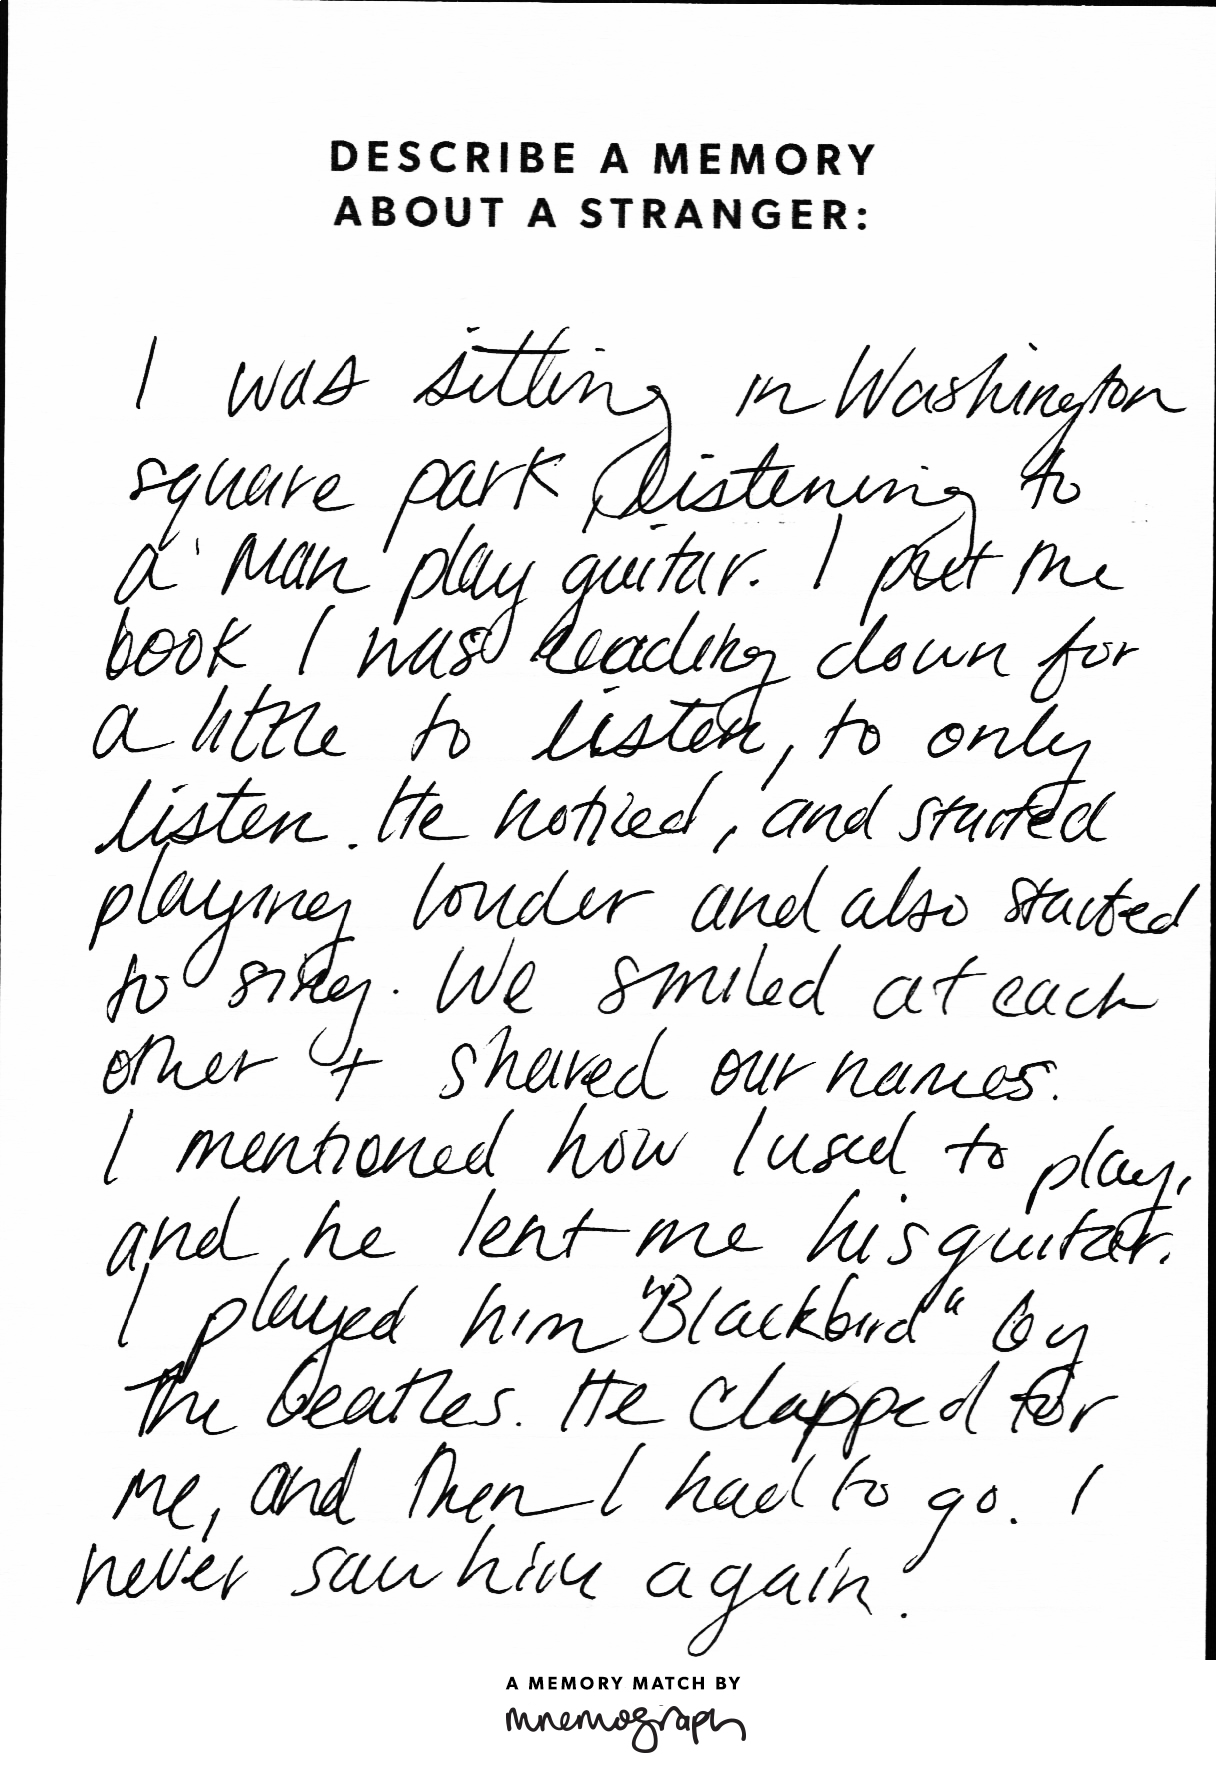 DESCRIBE A MEMORY
ABOUT A STRANGER:
I was sitting in Washington
square park listening to
a man play guitar. I put the
book I was reading down for
a little to listen, to only
listen. He noticed, and started
playing louder and also started
to sing. We smiled at each
other + shared our names.
I mentioned how I used to play,
and he lent me his guitar.
I played him "Blackbird" by
the Beatles. He clapped for
me, and then I had to go. I
never saw him again.
A MEMORY MATCH BY
mnemograph